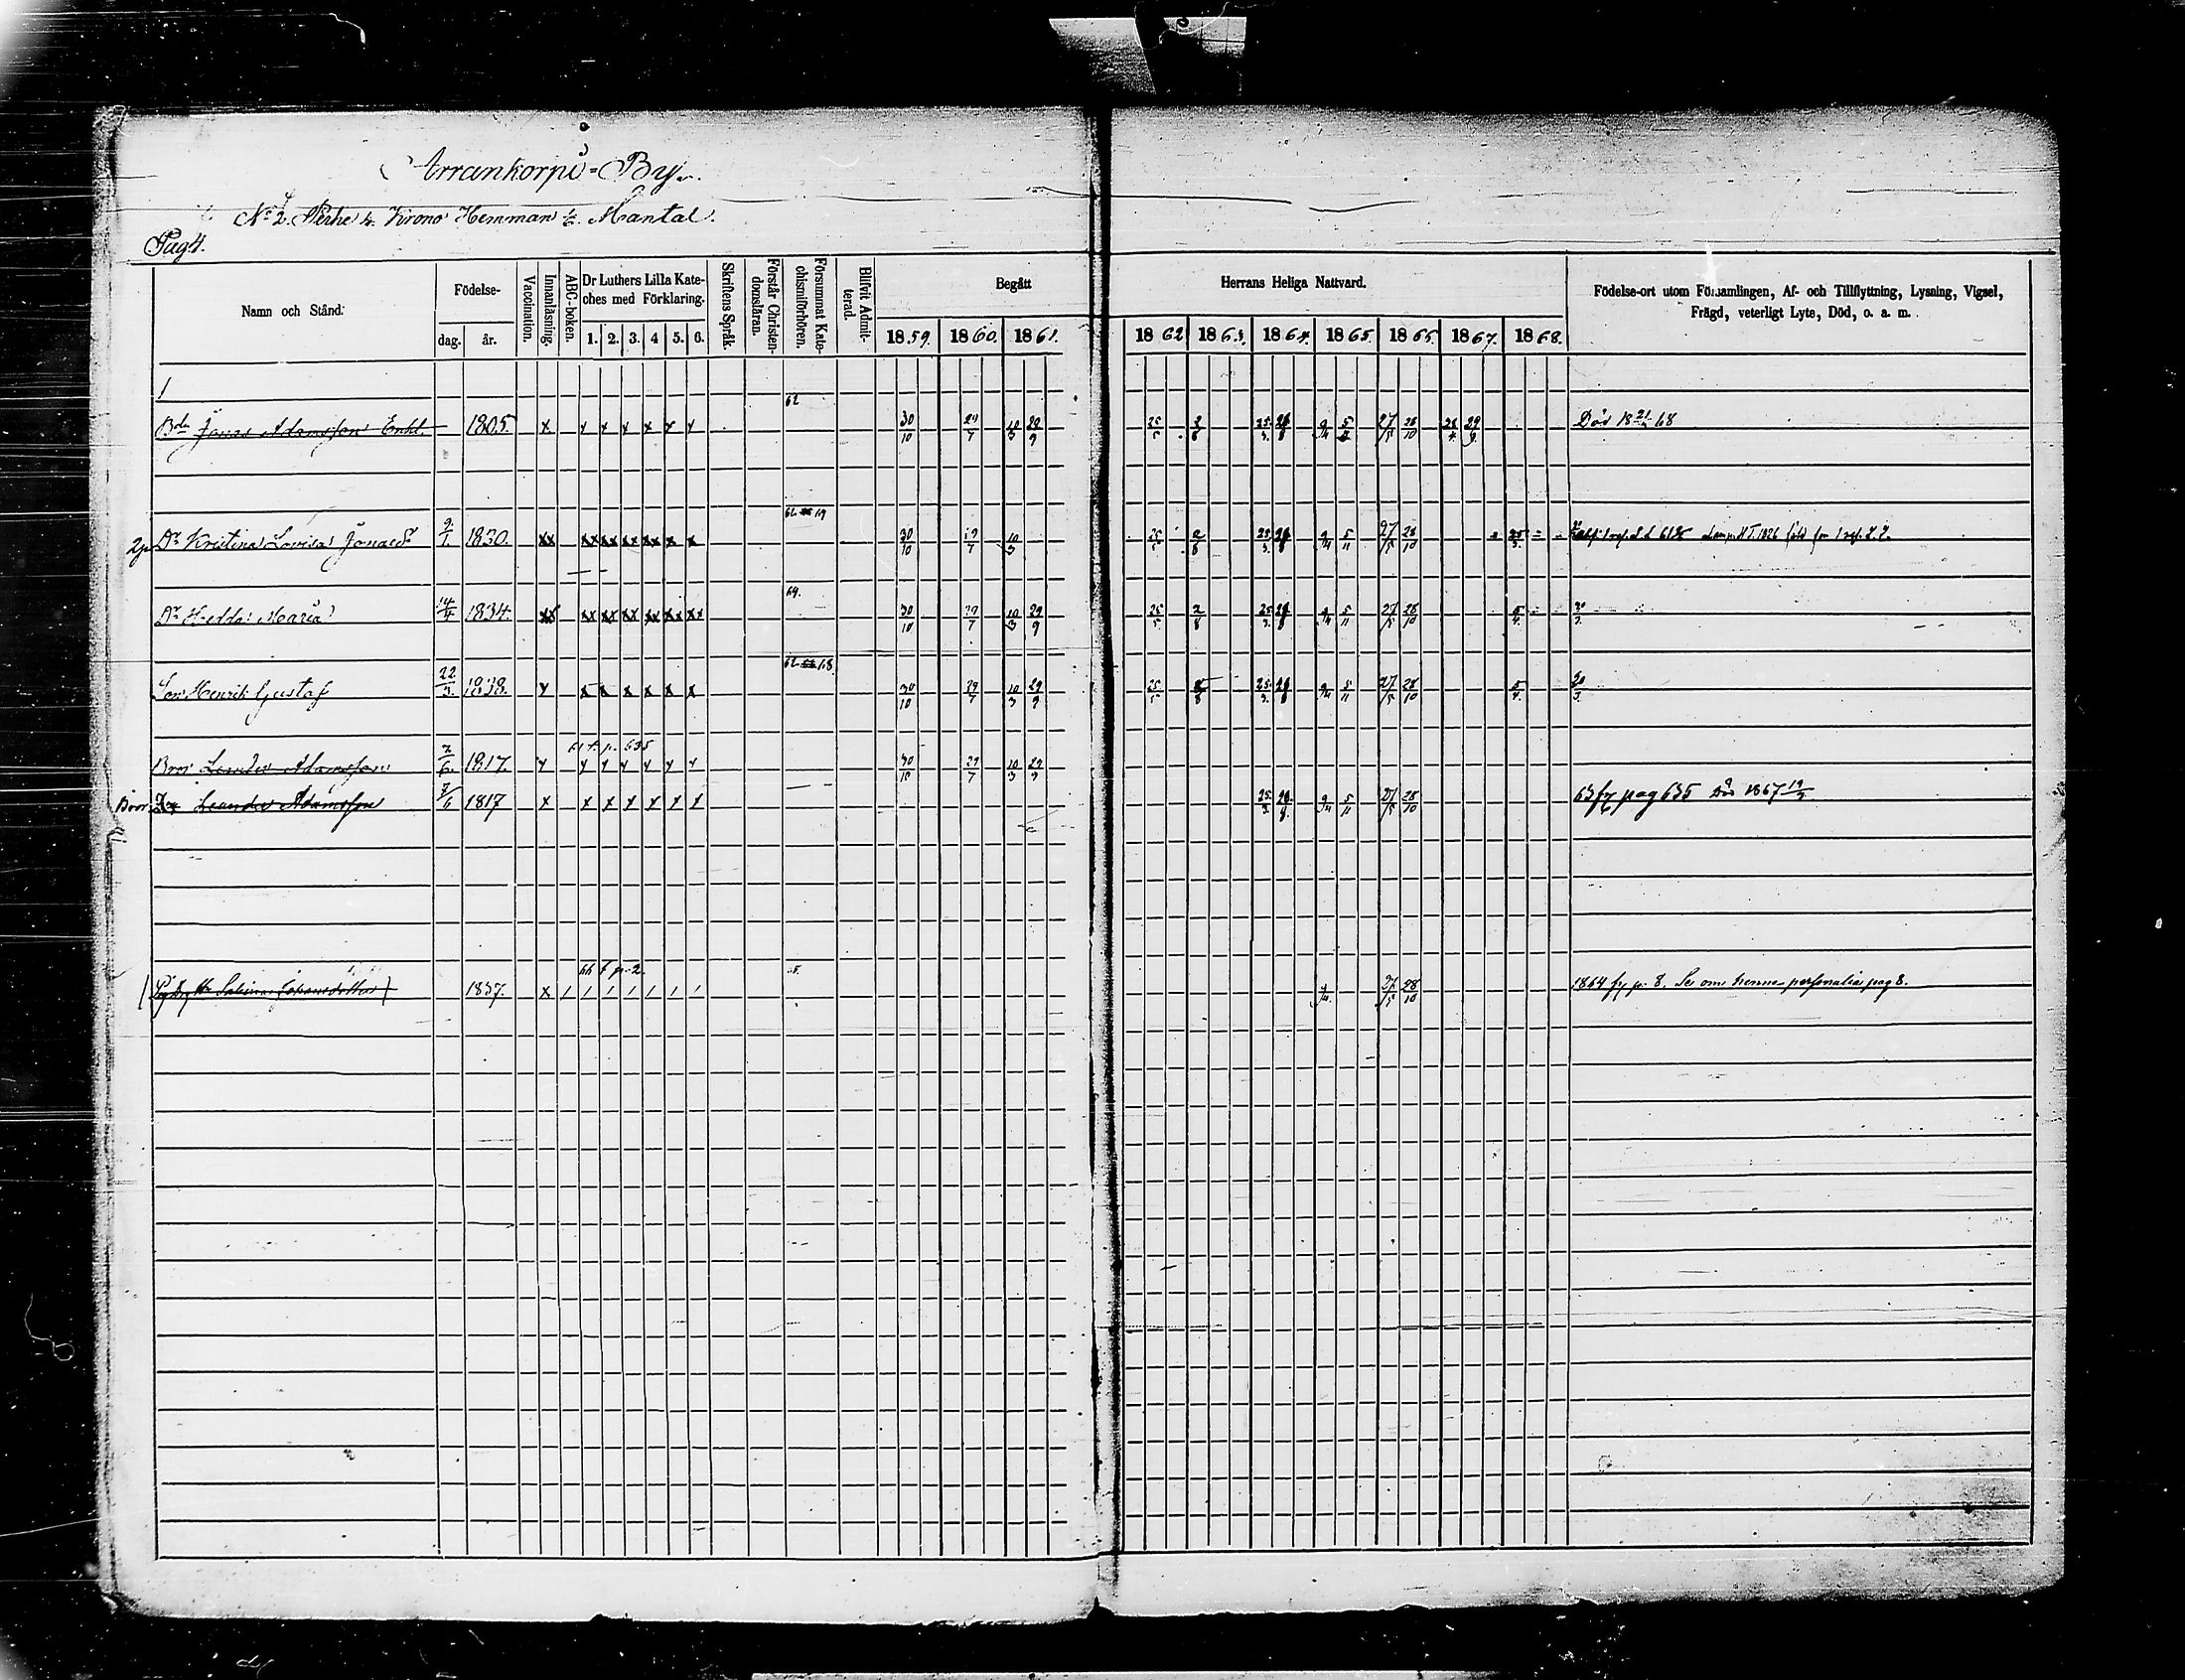 Arrankorpi-By.
No 2. Perhe Krono Hemman 1/6 Mantal.
Pag 4.
Namn och Stånd.
Födelse-
dag.
år.
Vaccination.
Innanläsning.
ABC-boken.
Dr Luthers Lilla Kate-
ches med Förklaring.
1. 2. 3. 4 5. 6.
Skriftens Språk.
Förstår Christen-
domsläran.
Försummat Kate-
chismiförhören.
Blifvit Admit-
terad.
Begått
Herrans Heliga Nattvard.
1859. 1860. 1861. 1862 1863. 1864. 1865. 1866. 1867. 1868.
Födelse-ort utom Församlingen, Af- och Tillflyttning, Lysning, Vigsel,
Frägd, veterligt Lyte, Död, o. a. m.
1
62
Bdn Jonas Adamsson Enkl. 1805. x x x x x x x 30/10 29/7 10/3 29/9 25/5 2/8 25/3 28/8 9/4 27/5 28/10 Död 68
62 69
Dr Kristina Lovisa Jonasdr 9/1 1830. xx xx xx xx xx x x 30/10 29/7 10/3 25/5 2/8 25/3 28/8 9/4 5/11 27/5 28/10
69.
Dr Hedda Maria 14/4 1834. xx xx xx xx xx xx xx 30/10 29/7 10/3 29/9 25/5 2/8 25/3 28/8 9/4 5/11 27/5 28/10 5/4
62 68
Son Henrik Gustaf 22/3 1838. x x x x x x x 30/10 29/7 10/3 29/9 25/5 25/3 28/8 9/4 5/11 27/5 28/10 5/4
61 f. p. 635
Bror Leander Adamsson 7/6 1817. x x x x x x x 30/10 29/7 10/3 29/9
Bror Leander Adamsson 7/6 1817 x x x x x x x 25/3 28/8 9/4 5/11 27/5 28/10 63 fr pag 635 Död 1867 19/5
66 f p. 2.
Sabina Johansdotter 1837. x / / / / / / / 9/4 27/5 28/10 1864 fr p. 8. Se om hennes personalia pag 8.